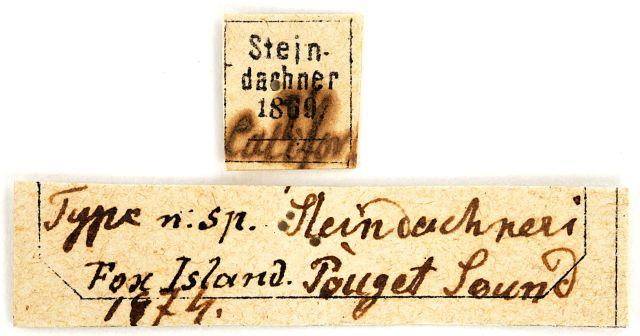 Stein-
dachner
1869
Califor
Type n. sp. Steindachneri
Fox Island. Pouget Sound
1874.